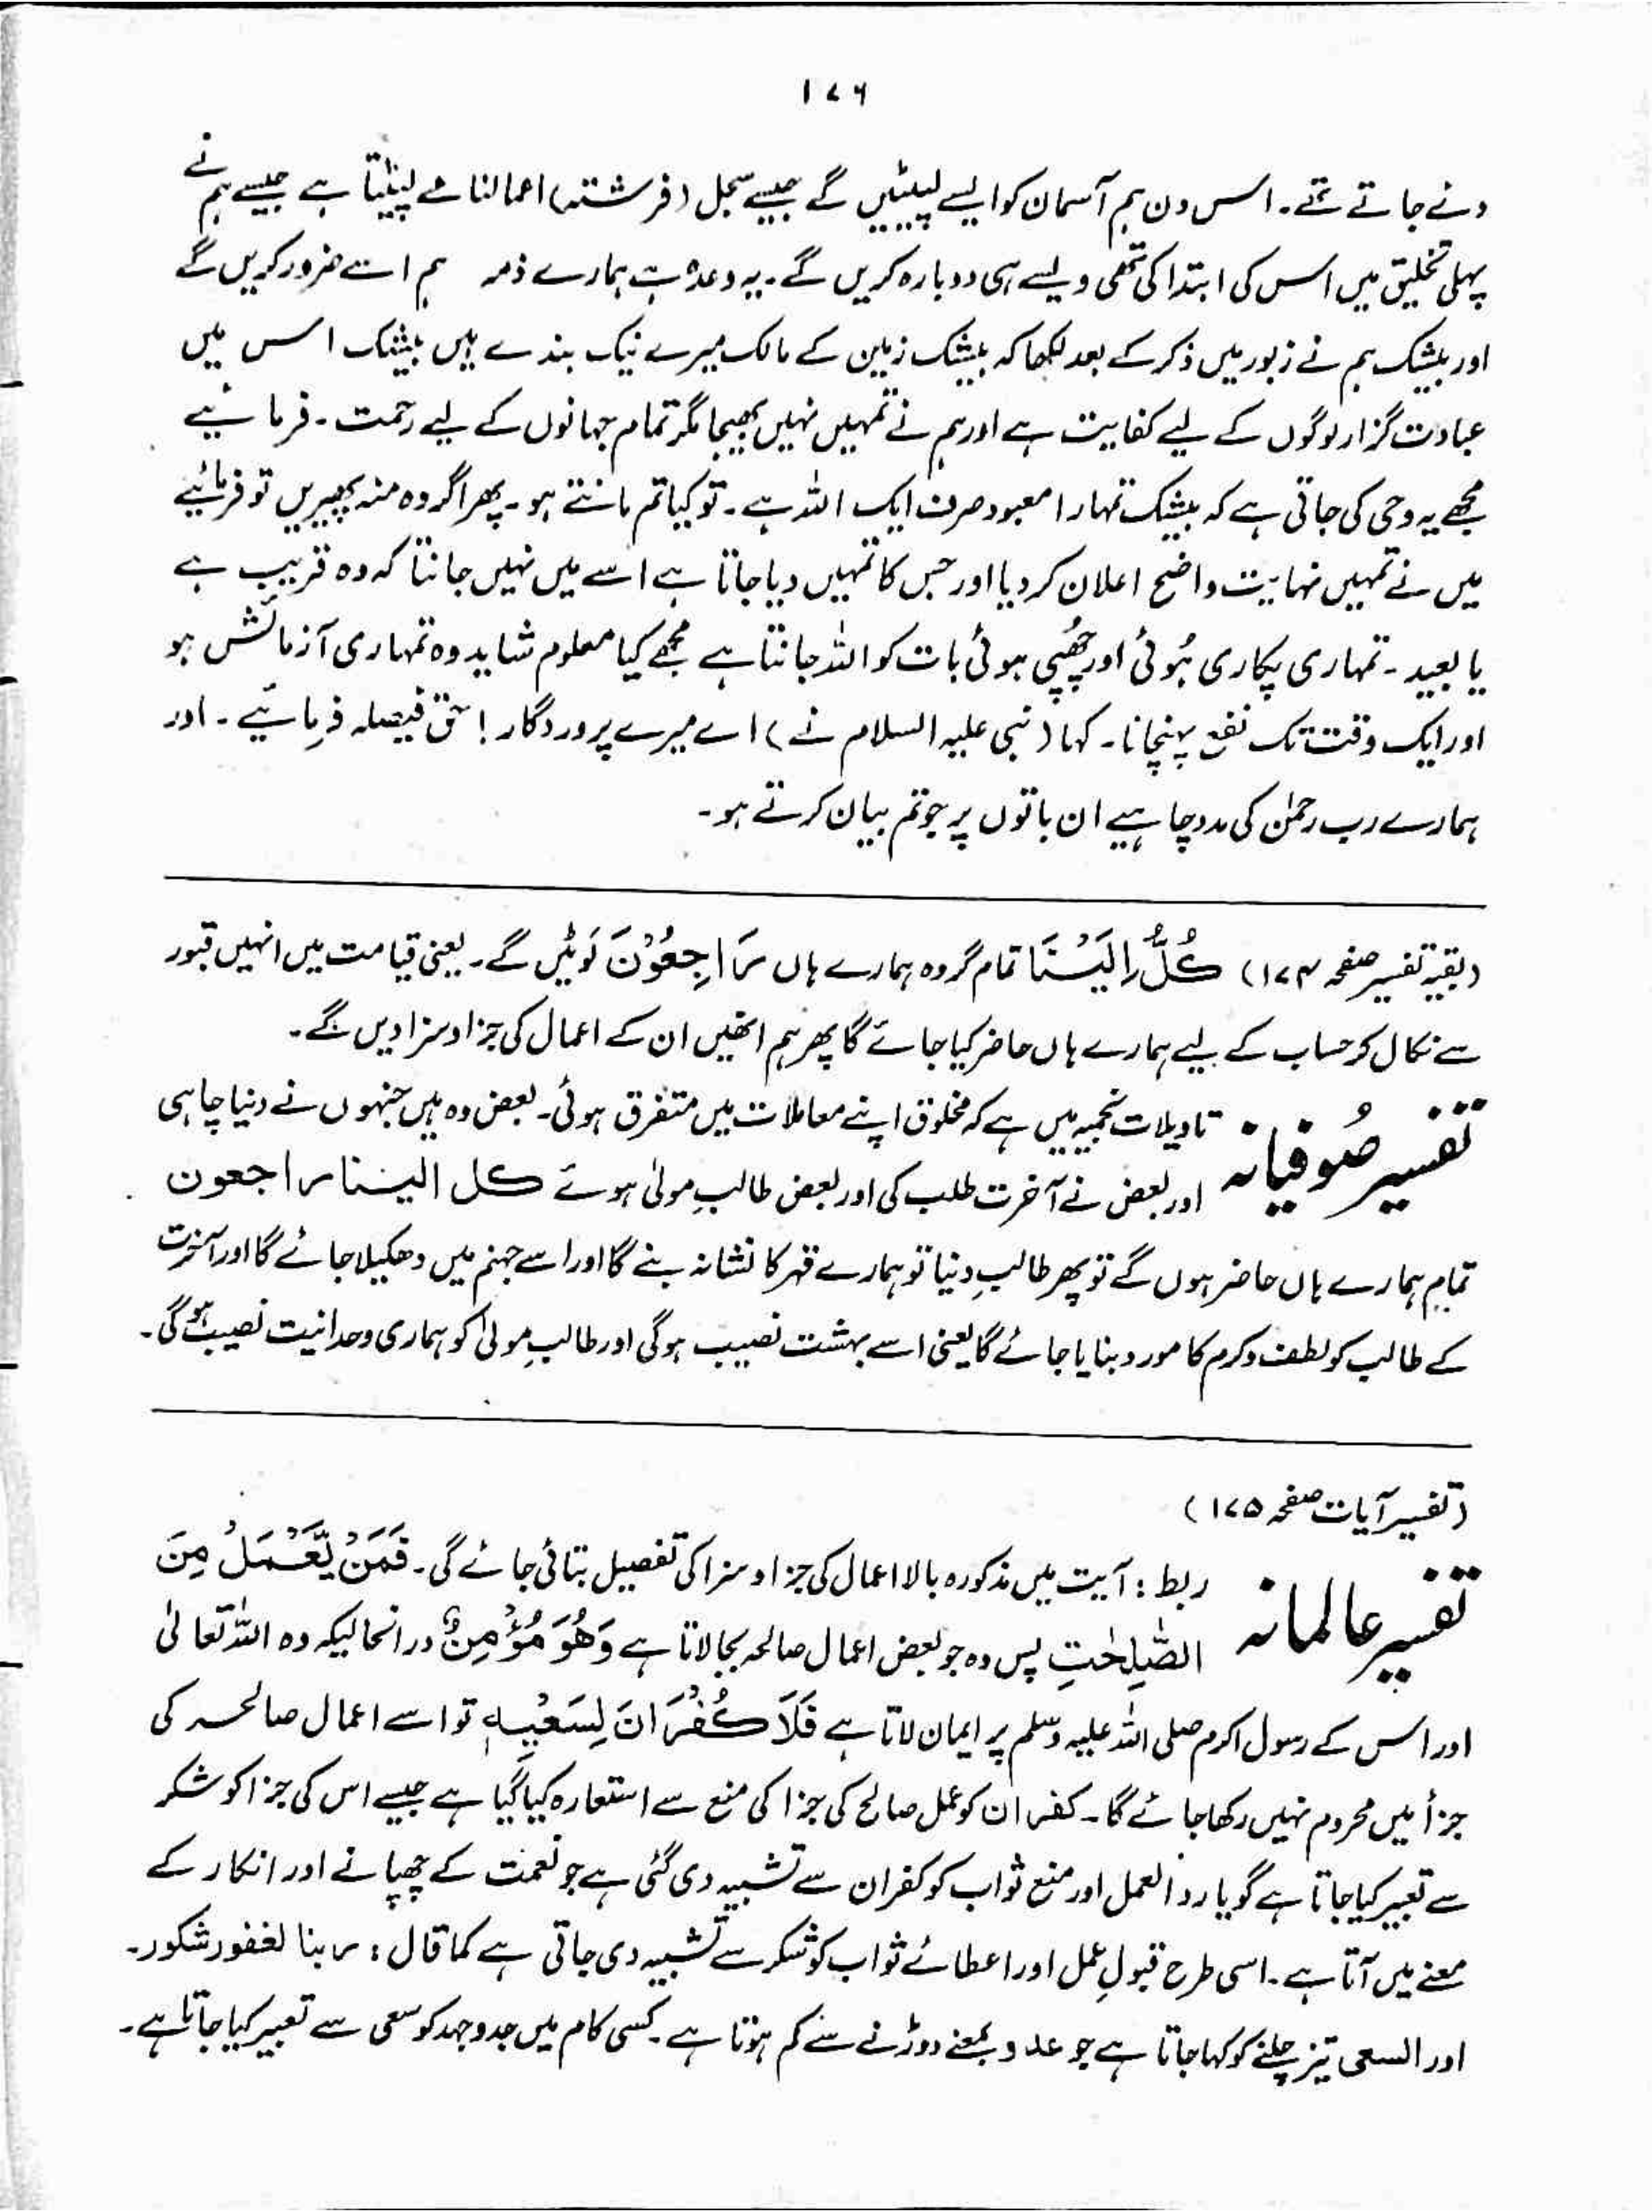 ۱۷۶
دئے جاتے تھے۔ اس دن ہم آسمان کو ایسے لپیٹیں گے جیسے سجل (فرشتہ) اعمالنامے لپیٹتا ہے جیسے ہم نے
پہلی تخلیق میں اس کی ابتدا کی تھی ویسے ہی دوبارہ کریں گے۔ یہ وعدہ ہے ہمارے ذمہ ہم اسے ضرور کریں گے
اور بیشک ہم نے زبور میں ذکر کے بعد لکھا کہ بیشک زمین کے مالک میرے نیک بندے ہیں بیشک اس میں
عبادت گزار لوگوں کے لیے کفایت ہے اور ہم نے تمہیں نہیں بھیجا مگر تمام جہانوں کے لیے رحمت۔ فرمائیے
مجھے یہ وحی کی جاتی ہے کہ بیشک تمہارا معبود صرف ایک اللہ ہے۔ تو کیا تم مانتے ہو۔ پھر اگر وہ منہ پھیریں تو فرمائیے
میں نے تمہیں نہایت واضح اعلان کر دیا اور جس کا تمہیں دیا جاتا ہے اسے میں نہیں جانتا کہ وہ قریب ہے
یا بعید۔ تمہاری پکاری ہُوئی اور چھُپی ہوئی بات کو اللہ جانتا ہے مجھے کیا معلوم شاید وہ تمہاری آزمائش ہو
اور ایک وقت تک نفع پہنچانا۔ کہا (نبی علیہ السلام نے) اے میرے پروردگار! حق فیصلہ فرمائیے۔ اور
ہمارے رب رحمٰن کی مدد چاہیے ان باتوں پر جو تم بیان کرتے ہو۔
(بقیہ تفسیر صفحہ ۱۷۴) كُلٌّ اِلَيْنَا تمام گروہ ہمارے ہاں رَاجِعُوْنَ لَوٹیں گے۔ یعنی قیامت میں انہیں قبور
سے نکال کر حساب کے لیے ہمارے ہاں حاضر کیا جائے گا پھر ہم انھیں ان کے اعمال کی جزا و سزا دیں گے۔
تفسیر صُوفیانہ تاویلات نجمیہ میں ہے کہ مخلوق اپنے معاملات میں متفرق ہوئی۔ بعض وہ ہیں جنہوں نے دنیا چاہی
اور بعض نے آخرت طلب کی اور بعض طالبِ مولیٰ ہوئے کل الینا راجعون
تمام ہمارے ہاں حاضر ہوں گے تو پھر طالبِ دنیا تو ہمارے قہر کا نشانہ بنے گا اور اسے جہنم میں دھکیلا جائے گا اور آخرت
کے طالب کو لطف و کرم کا مورد بنایا جائے گا یعنی اسے بہشت نصیب ہوگی اور طالبِ مولیٰ کو ہماری وحدانیت نصیب ہوگی۔
(تفسیر آیات صفحہ ۱۷۵)
تفسیر عالمانہ ربط : آیت میں مذکورہ بالا اعمال کی جزا و سزا کی تفصیل بتائی جائے گی۔ فَمَنْ يَّعْمَلْ مِنَ
الصّٰلِحٰتِ پس وہ جو بعض اعمال صالحہ بجا لاتا ہے وَهُوَ مُؤْمِنٌ درانحالیکہ وہ اللہ تعالیٰ
اور اس کے رسول اکرم صلی اللہ علیہ وسلم پر ایمان لاتا ہے فَلَا كُفْرَانَ لِسَعْيِهٖ تو اسے اعمال صالحہ کی
جزأ میں محروم نہیں رکھا جائے گا۔ کفران کو عمل صالح کی جزا کی منع سے استعارہ کیا گیا ہے جیسے اس کی جزا کو شکر
سے تعبیر کیا جاتا ہے گویا رد العمل اور منع ثواب کو کفران سے تشبیہ دی گئی ہے جو نعمت کے چھپانے اور انکار کے
معنے میں آتا ہے۔ اسی طرح قبولِ عمل اور اعطائے ثواب کو شکر سے تشبیہ دی جاتی ہے کما قال : ربنا لغفور شکور۔
اور السعی تیز چلنے کو کہا جاتا ہے جو عدو بمعنے دوڑنے سے کم ہوتا ہے۔ کسی کام میں جدوجہد کو سعی سے تعبیر کیا جاتا ہے۔